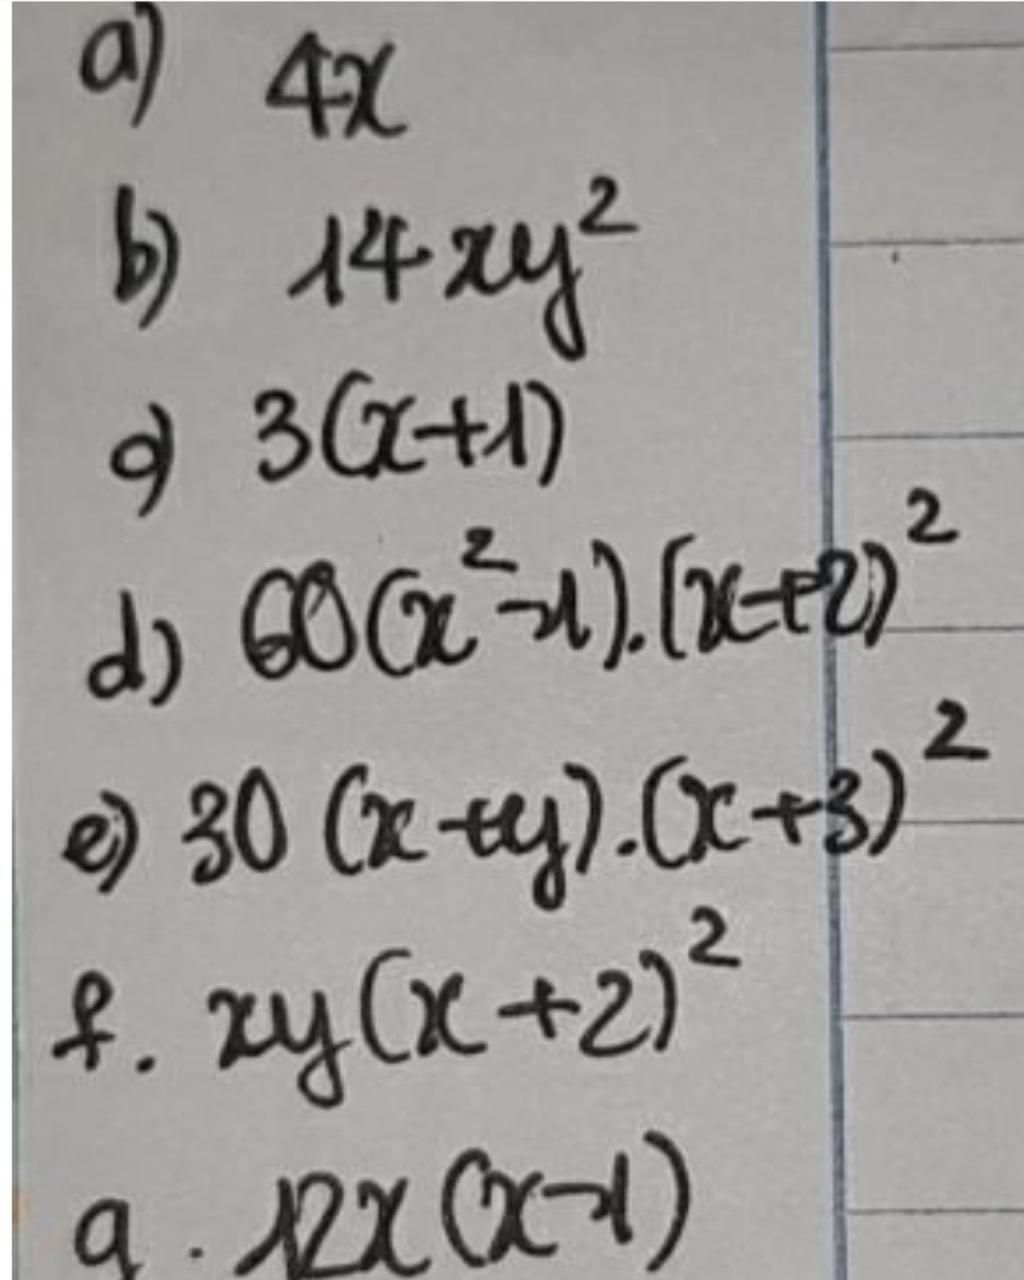 a) 4x
b) 14xy²
c) 3(x+1)
d) 60(x²-1).(x+2)²
e) 30(x+y).(x+3)²
f. xy(x+2)²
g. 12x(x-1)